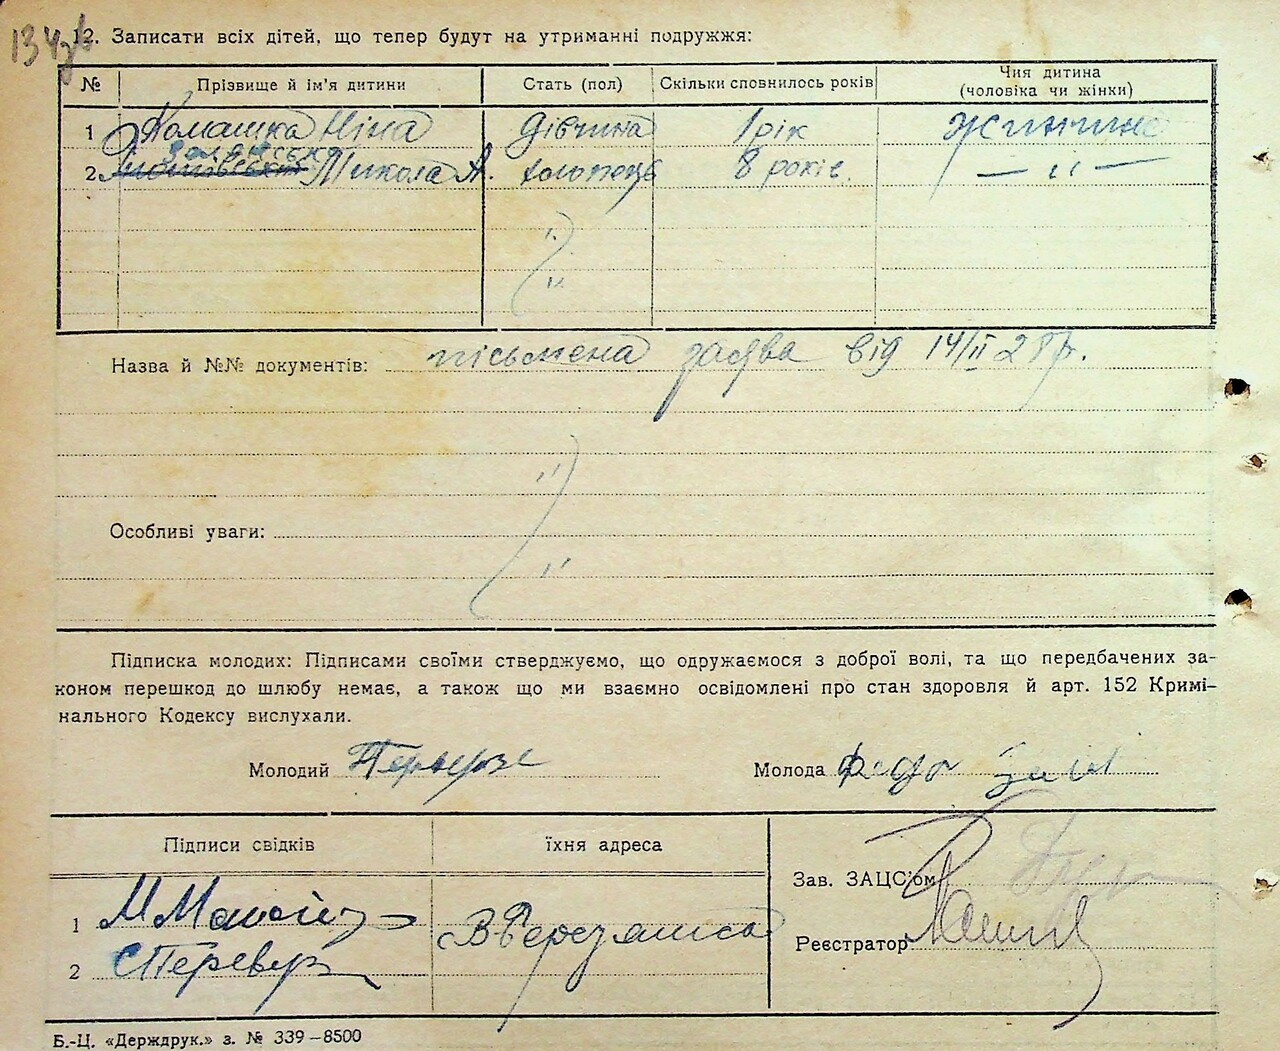 134зв
12. Записати всіх дітей, що тепер будут на утриманні подружжя:
№ Прізвище й ім'я дитини Стать (пол) Скільки сповнилось років Чия дитина (чоловіка чи жінки)
1 Комашка Ніна дівчина 1 рік жинчина
2 Микола А. хлопець 8 років. — " —
Назва й №№ документів: пісьмена заява від 14/II 28р.
Особливі уваги:
Підписка молодих: Підписами своїми стверджуємо, що одружаємося з доброї волі, та що передбачених за-
коном перешкод до шлюбу немає, а також що ми взаємно освідомлені про стан здоровля й арт. 152 Кримі-
нального Кодексу вислухали.
Молодий Молода
Підписи свідків їхня адреса
Зав. ЗАЦС'ом
1 М
Реєстратор
2 С Перевуз
Б.-Ц. «Держдрук.» з. № 339–8500